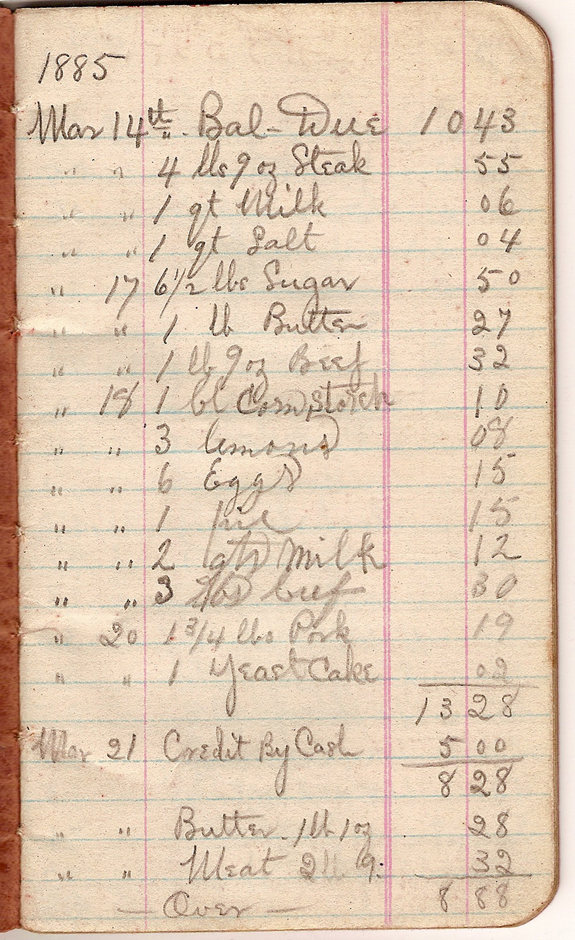 1885
Mar 14th Bal- Due 10 43
" " 4 lbs 9 oz Steak 55
" " 1 qt Milk 06
" " 1 qt Salt 04
" 17 6 1/2 lbs Sugar 50
" " 1 lb Butter 27
" " 1 lb 9 oz Beef 32
" 18 1 Corn Starch 10
" " 3 lemons 08
" " 6 Eggs 15
" " 1 pie 15
" " 2 qts Milk 12
" " 3 lbs beef 30
" 20 1 3/4 lbs Pork 19
" " 1 Yeast Cake 02
13 28
Mar 21 Credit By Cash 5 00
8 28
" " Butter 1 lb 1 oz 28
" " Meat 2 lb 9 32
— Over — 8 88